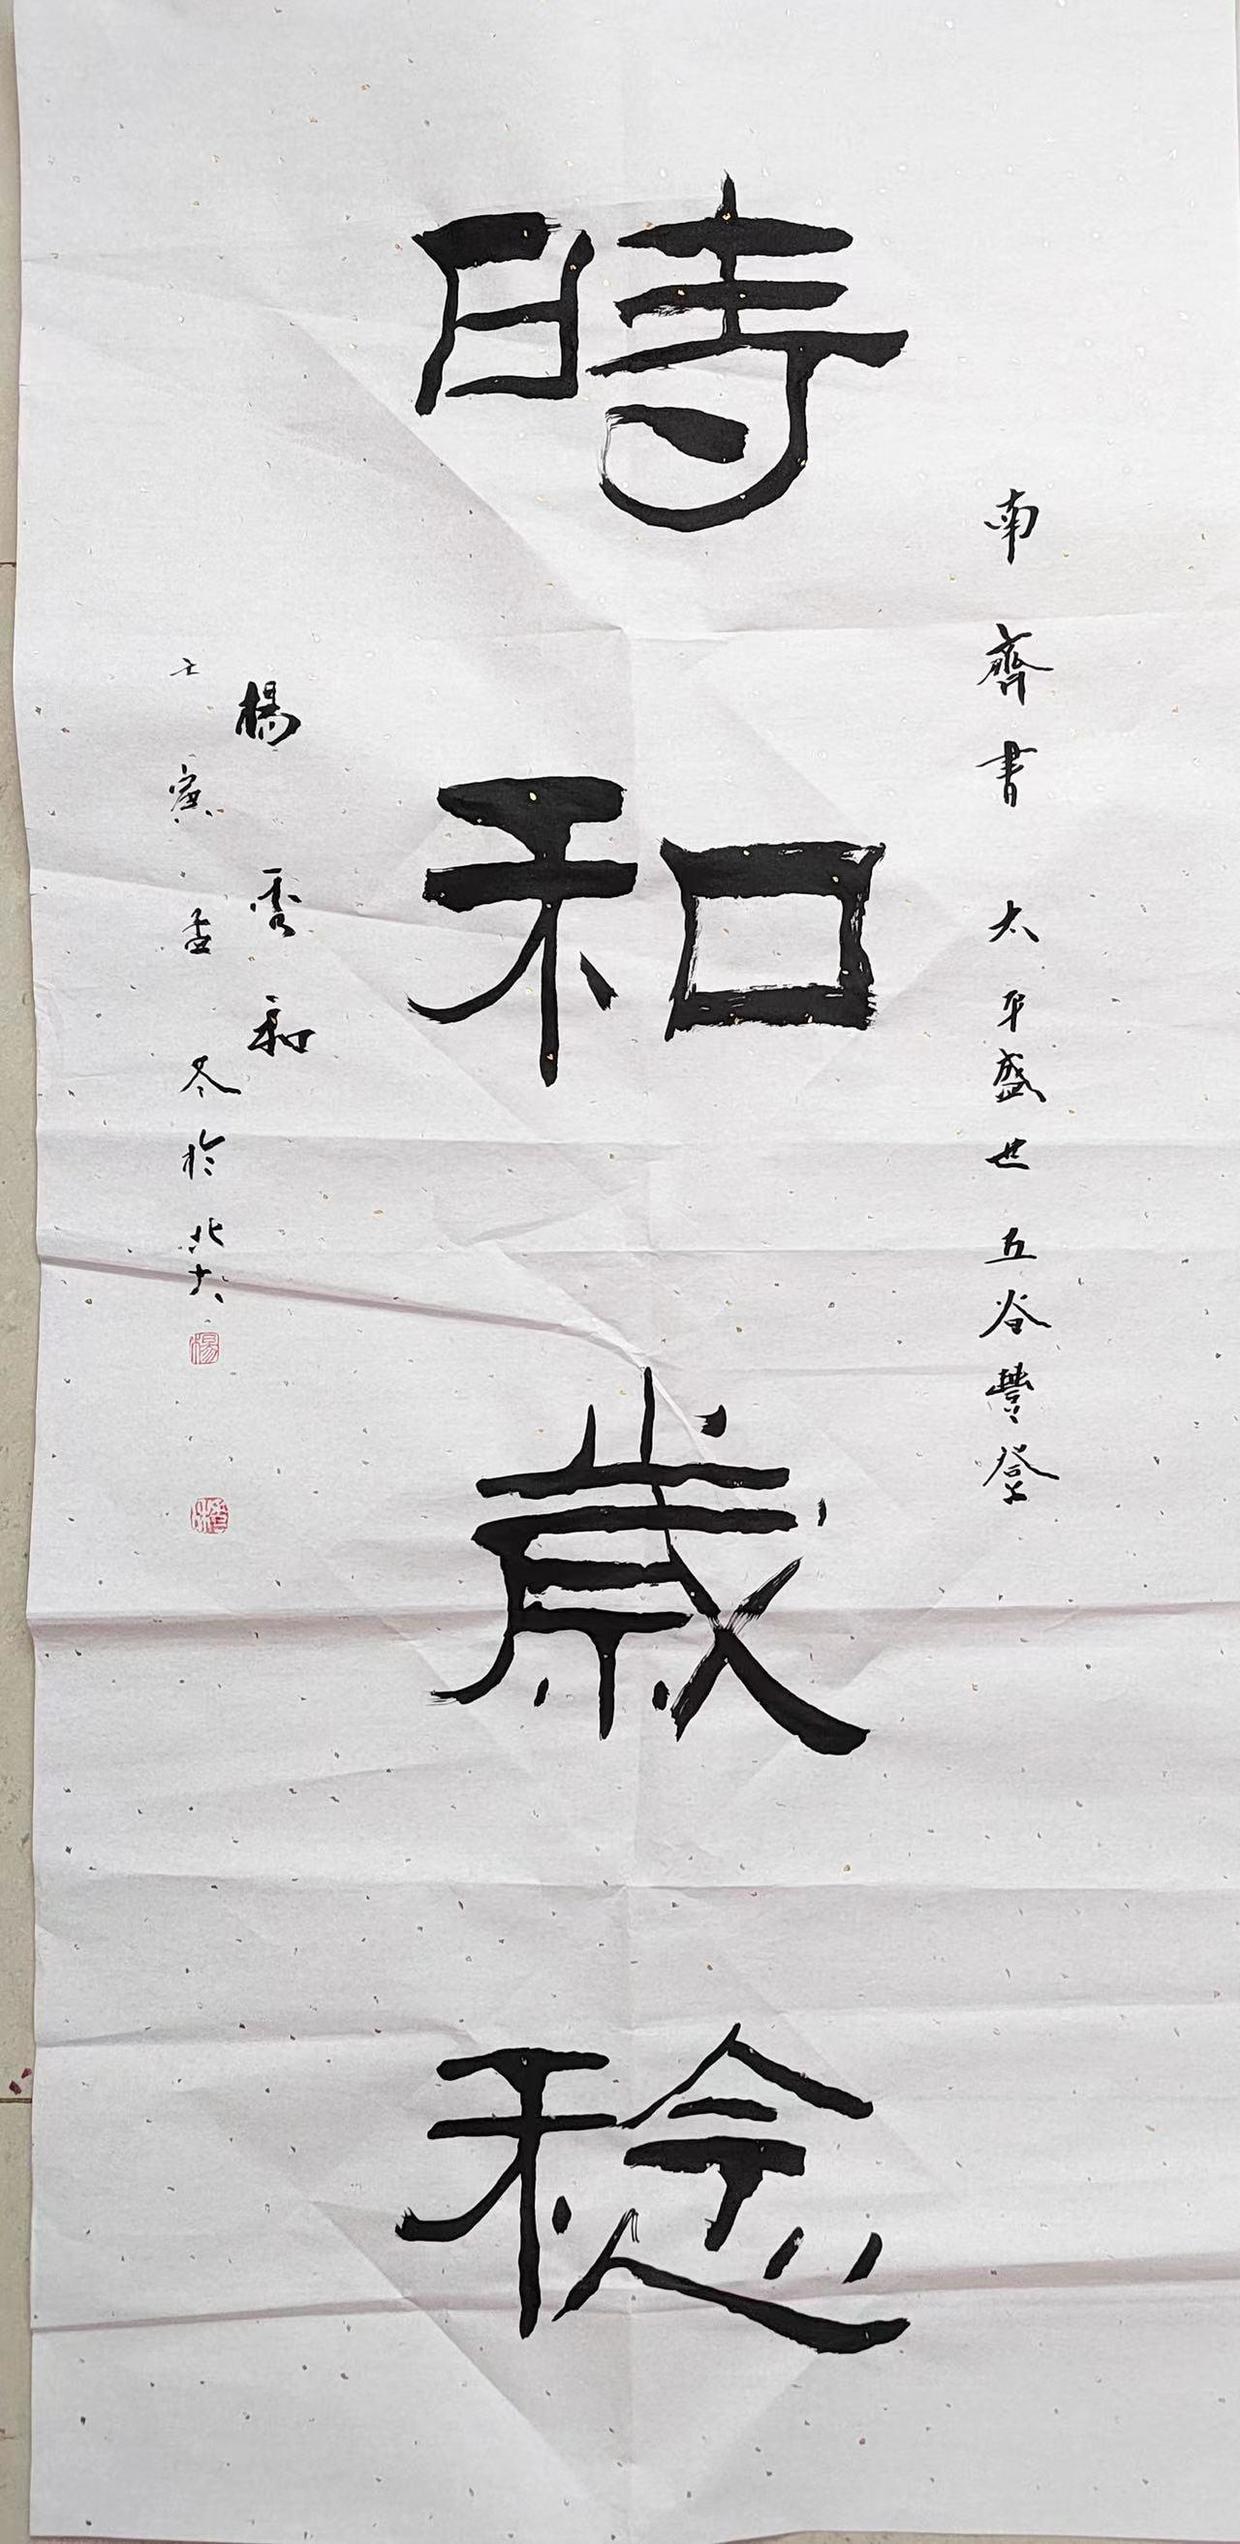 時和歲稔
南齊書太平盛世五谷豐登
楊雲和
壬寅孟冬於北大
楊